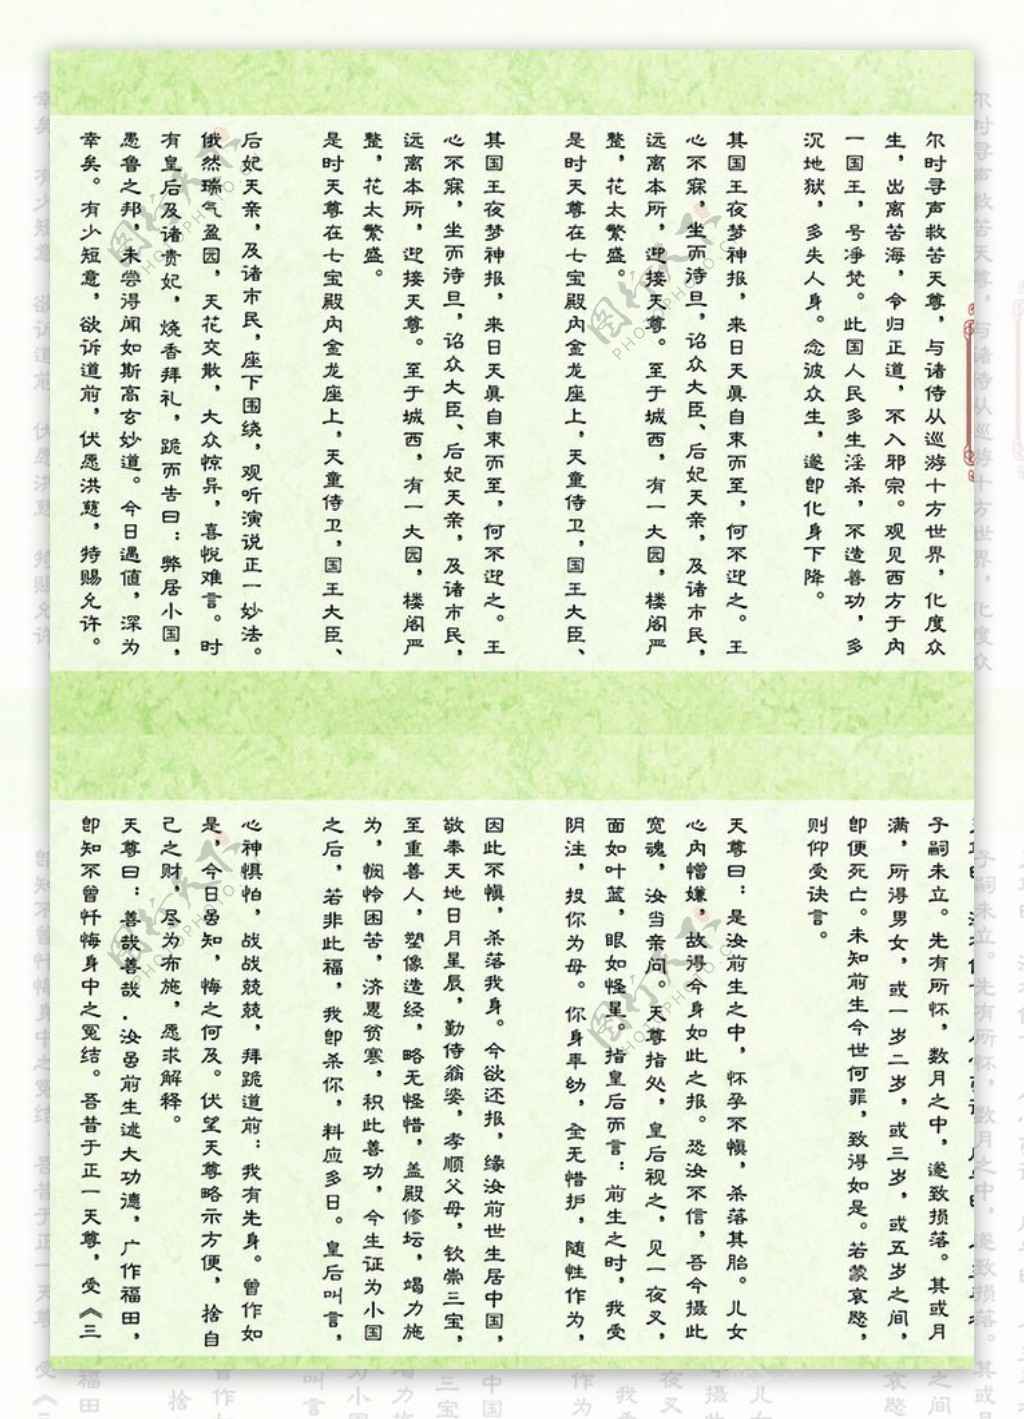 尔时寻声救苦天尊，与诸侍从巡游十方世界，化度众
生，出离苦海，令归正道，不入邪宗。观见西方于内
一国王，号净梵。此国人民多生淫杀，不造善功，多
沉地狱，多失人身。念彼众生，遂即化身下降。
其国王夜梦神报，来日天真自束而至，何不迎之。王
心不寐，坐而待旦，诏众大臣、后妃天亲，及诸市民，
远离本所，迎接天尊。至于城西，有一大园，楼阁严
整，花太繁盛。
是时天尊在七宝殿内金龙座上，天童侍卫，国王大臣、
其国王夜梦神报，来日天真自束而至，何不迎之。王
心不寐，坐而待旦，诏众大臣、后妃天亲，及诸市民，
远离本所，迎接天尊。至于城西，有一大园，楼阁严
整，花太繁盛。
是时天尊在七宝殿内金龙座上，天童侍卫，国王大臣、
后妃天亲，及诸市民，座下围绕，观听演说正一妙法。
俄然瑞气盈园，天花交散，大众惊异，喜悦难言。时
有皇后及诸贵妃，烧香拜礼，跪而告曰：弊居小国，
愚鲁之邦，未尝得闻如斯高玄妙道。今日遇值，深为
幸矣。有少短意，欲诉道前，伏愿洪慈，特赐允许。
子嗣未立。先有所怀，数月之中，遂致损落。其或月
满，所得男女，或一岁二岁，或三岁，或五岁之间，
即便死亡。未知前生今世何罪，致得如是。若蒙哀愍，
则仰受诀言。
天尊曰：是汝前生之中，怀孕不慎，杀落其胎。儿女
心内憎嫌，故得今身如此之报。恐汝不信，吾今摄此
宽魂，汝当亲问。天尊指处，皇后视之，见一夜叉，
面如叶蓝，眼如怪星。指皇后而言：前生之时，我受
阴注，投你为母。你身年幼，全无惜护，随性作为，
因此不慎，杀落我身。今欲还报，缘汝前世生居中国，
敬奉天地日月星辰，勤侍翁婆，孝顺父母，钦崇三宝，
至重善人，塑像造经，略无怪惜，盖殿修坛，竭力施
为，悯怜困苦，济惠贫寒，积此善功，今生证为小国
之后，若非此福，我即杀你，料应多日。皇后叫言，
心神惧怕，战战兢兢，拜跪道前：我有先身。曾作如
是，今日虽知，悔之何及。伏望天尊略示方便，捨自
己之财，尽为布施，愿求解释。
天尊曰：善哉善哉．汝虽前生述大功德，广作福田，
即知不曾忏悔身中之冤结。吾昔于正一天尊，受《三